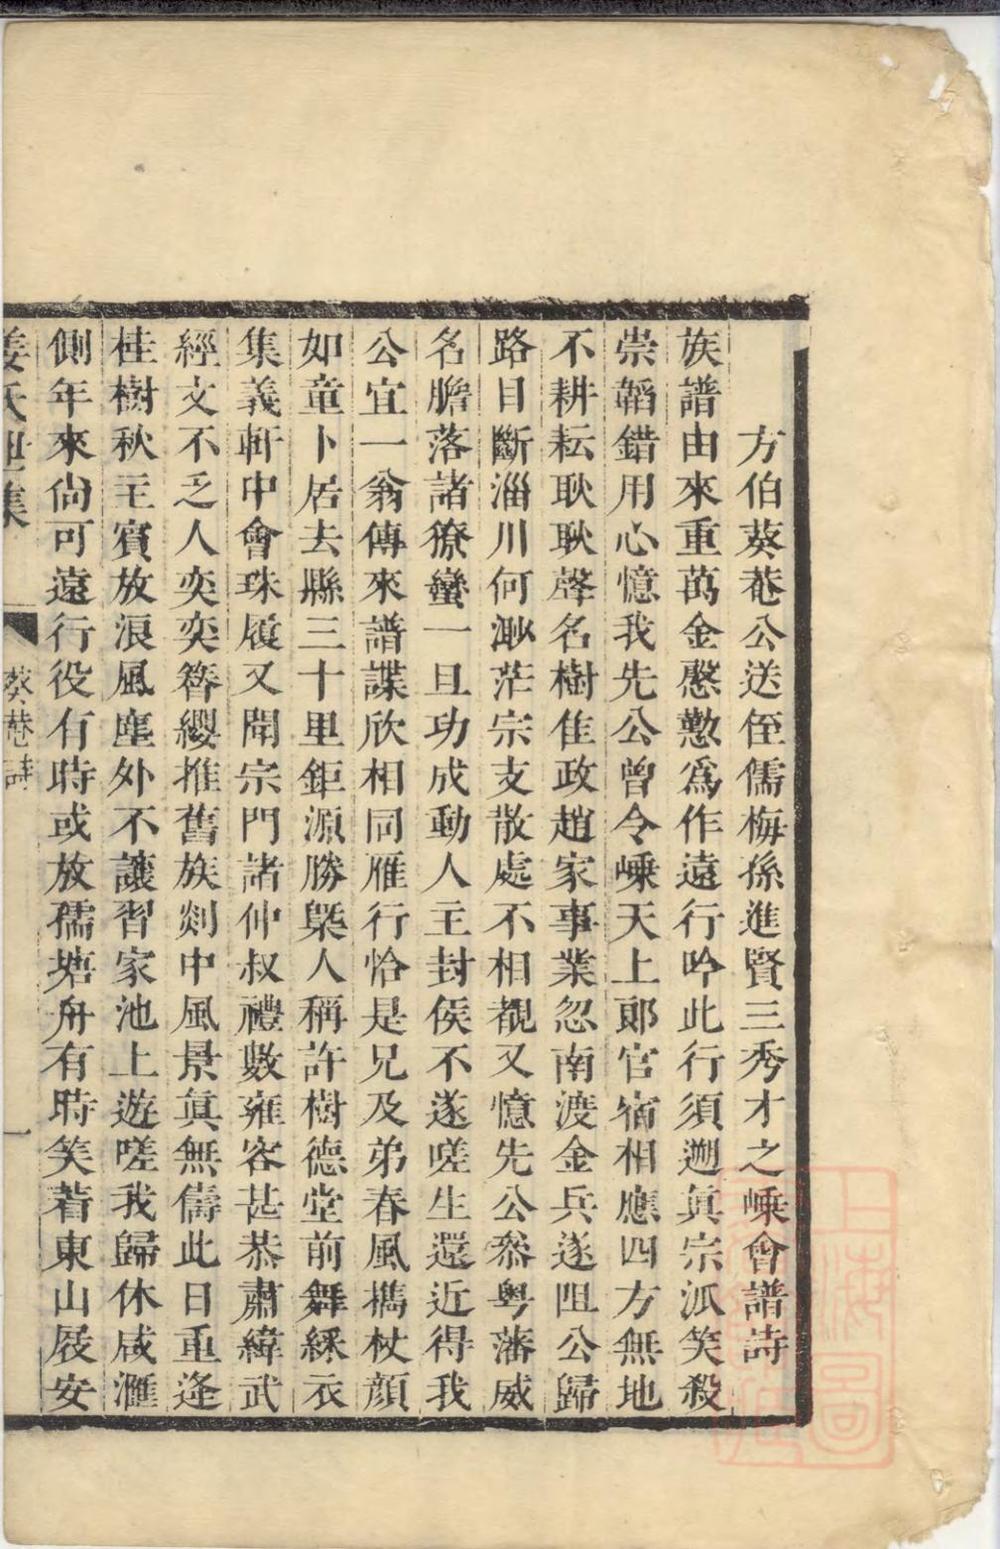 方伯葵菴公送侄儒梅孫進賢三秀才之嵊會譜詩
族譜由來重萬金慇懃爲作遠行吟此行須遡眞宗派笑殺
崇韜錯用心憶我先公曾令嵊天上郞官宿相應四方無地
不耕耘耿耿聲名樹佳政趙家事業忽南渡金兵遂阻公歸
路目斷淄川何渺茫宗支散處不相覩又憶先公叅粤藩威
名膽落諸獠蠻一旦功成動人主封侯不遂嗟生還近得我
公宜一翁傳來譜諜欣相同雁行恰是兄及弟春風檇杖顔
如童卜居去縣三十里鉅源勝槩人稱許樹德堂前舞綵衣
集義軒中會珠履又聞宗門諸仲叔禮數雍容甚恭肅緯武
經文不乏人奕奕簪纓推舊族剡中風景眞無儔此日重逢
桂樹秋主賓放浪風塵外不讓習家池上遊嗟我歸休咸滙
側年來尙可遠行役有時或放孺塘舟有時笑着東山屐安
姜氏世集 葵菴詩 一
上海圖